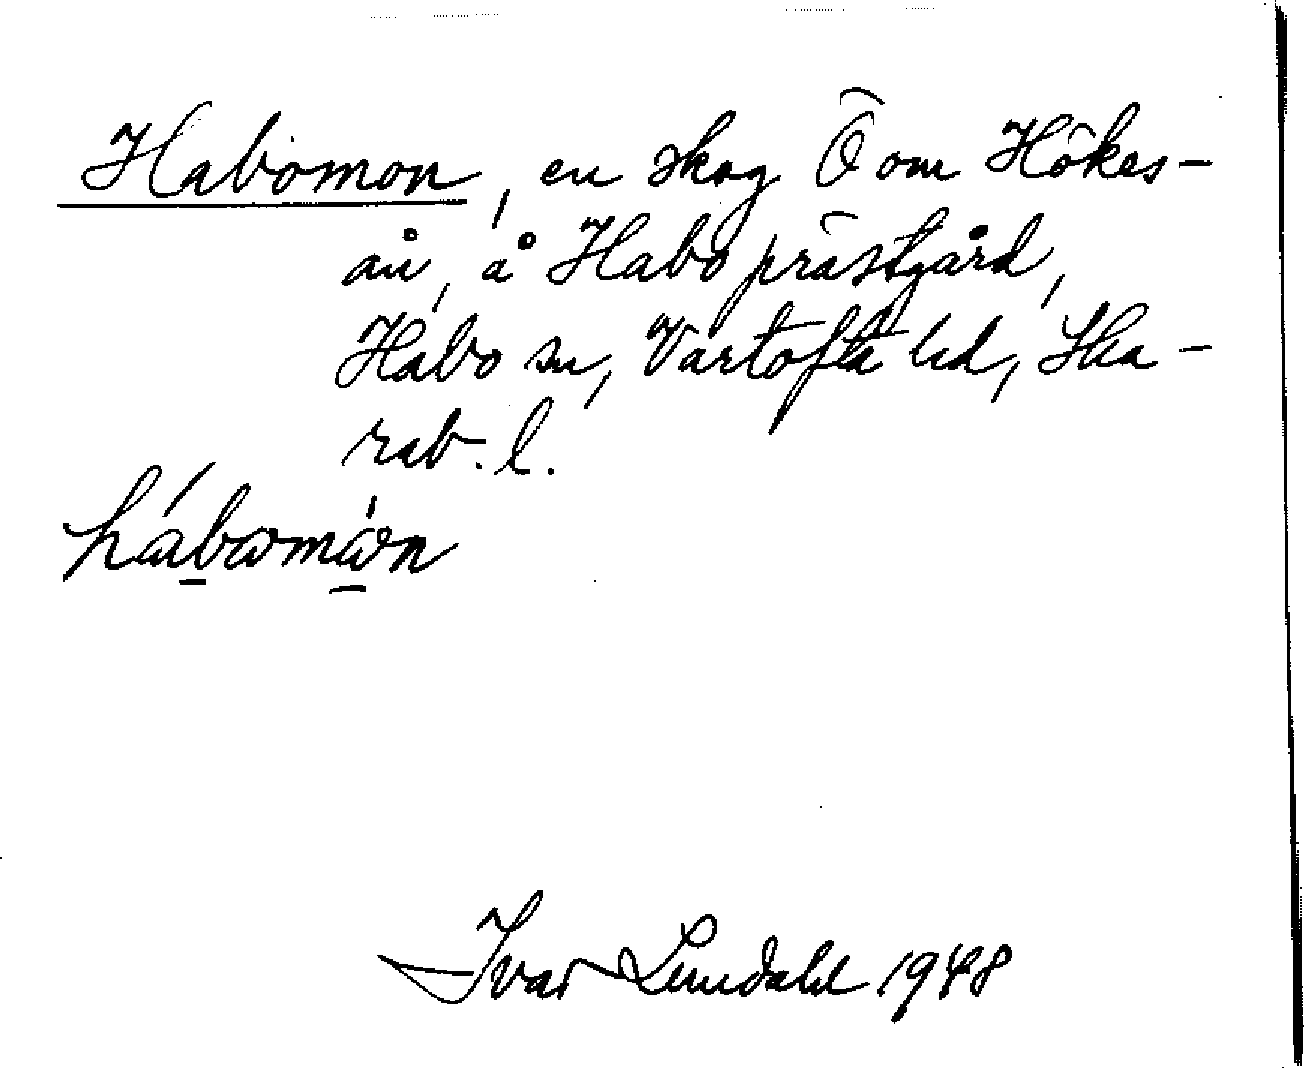 Habomon, en skog Ö om Hökes-
ån, å Habo prästgård,
Habo sn, Vartofta hd, Ska-
rab. l.
Ivar Lundahl 1948